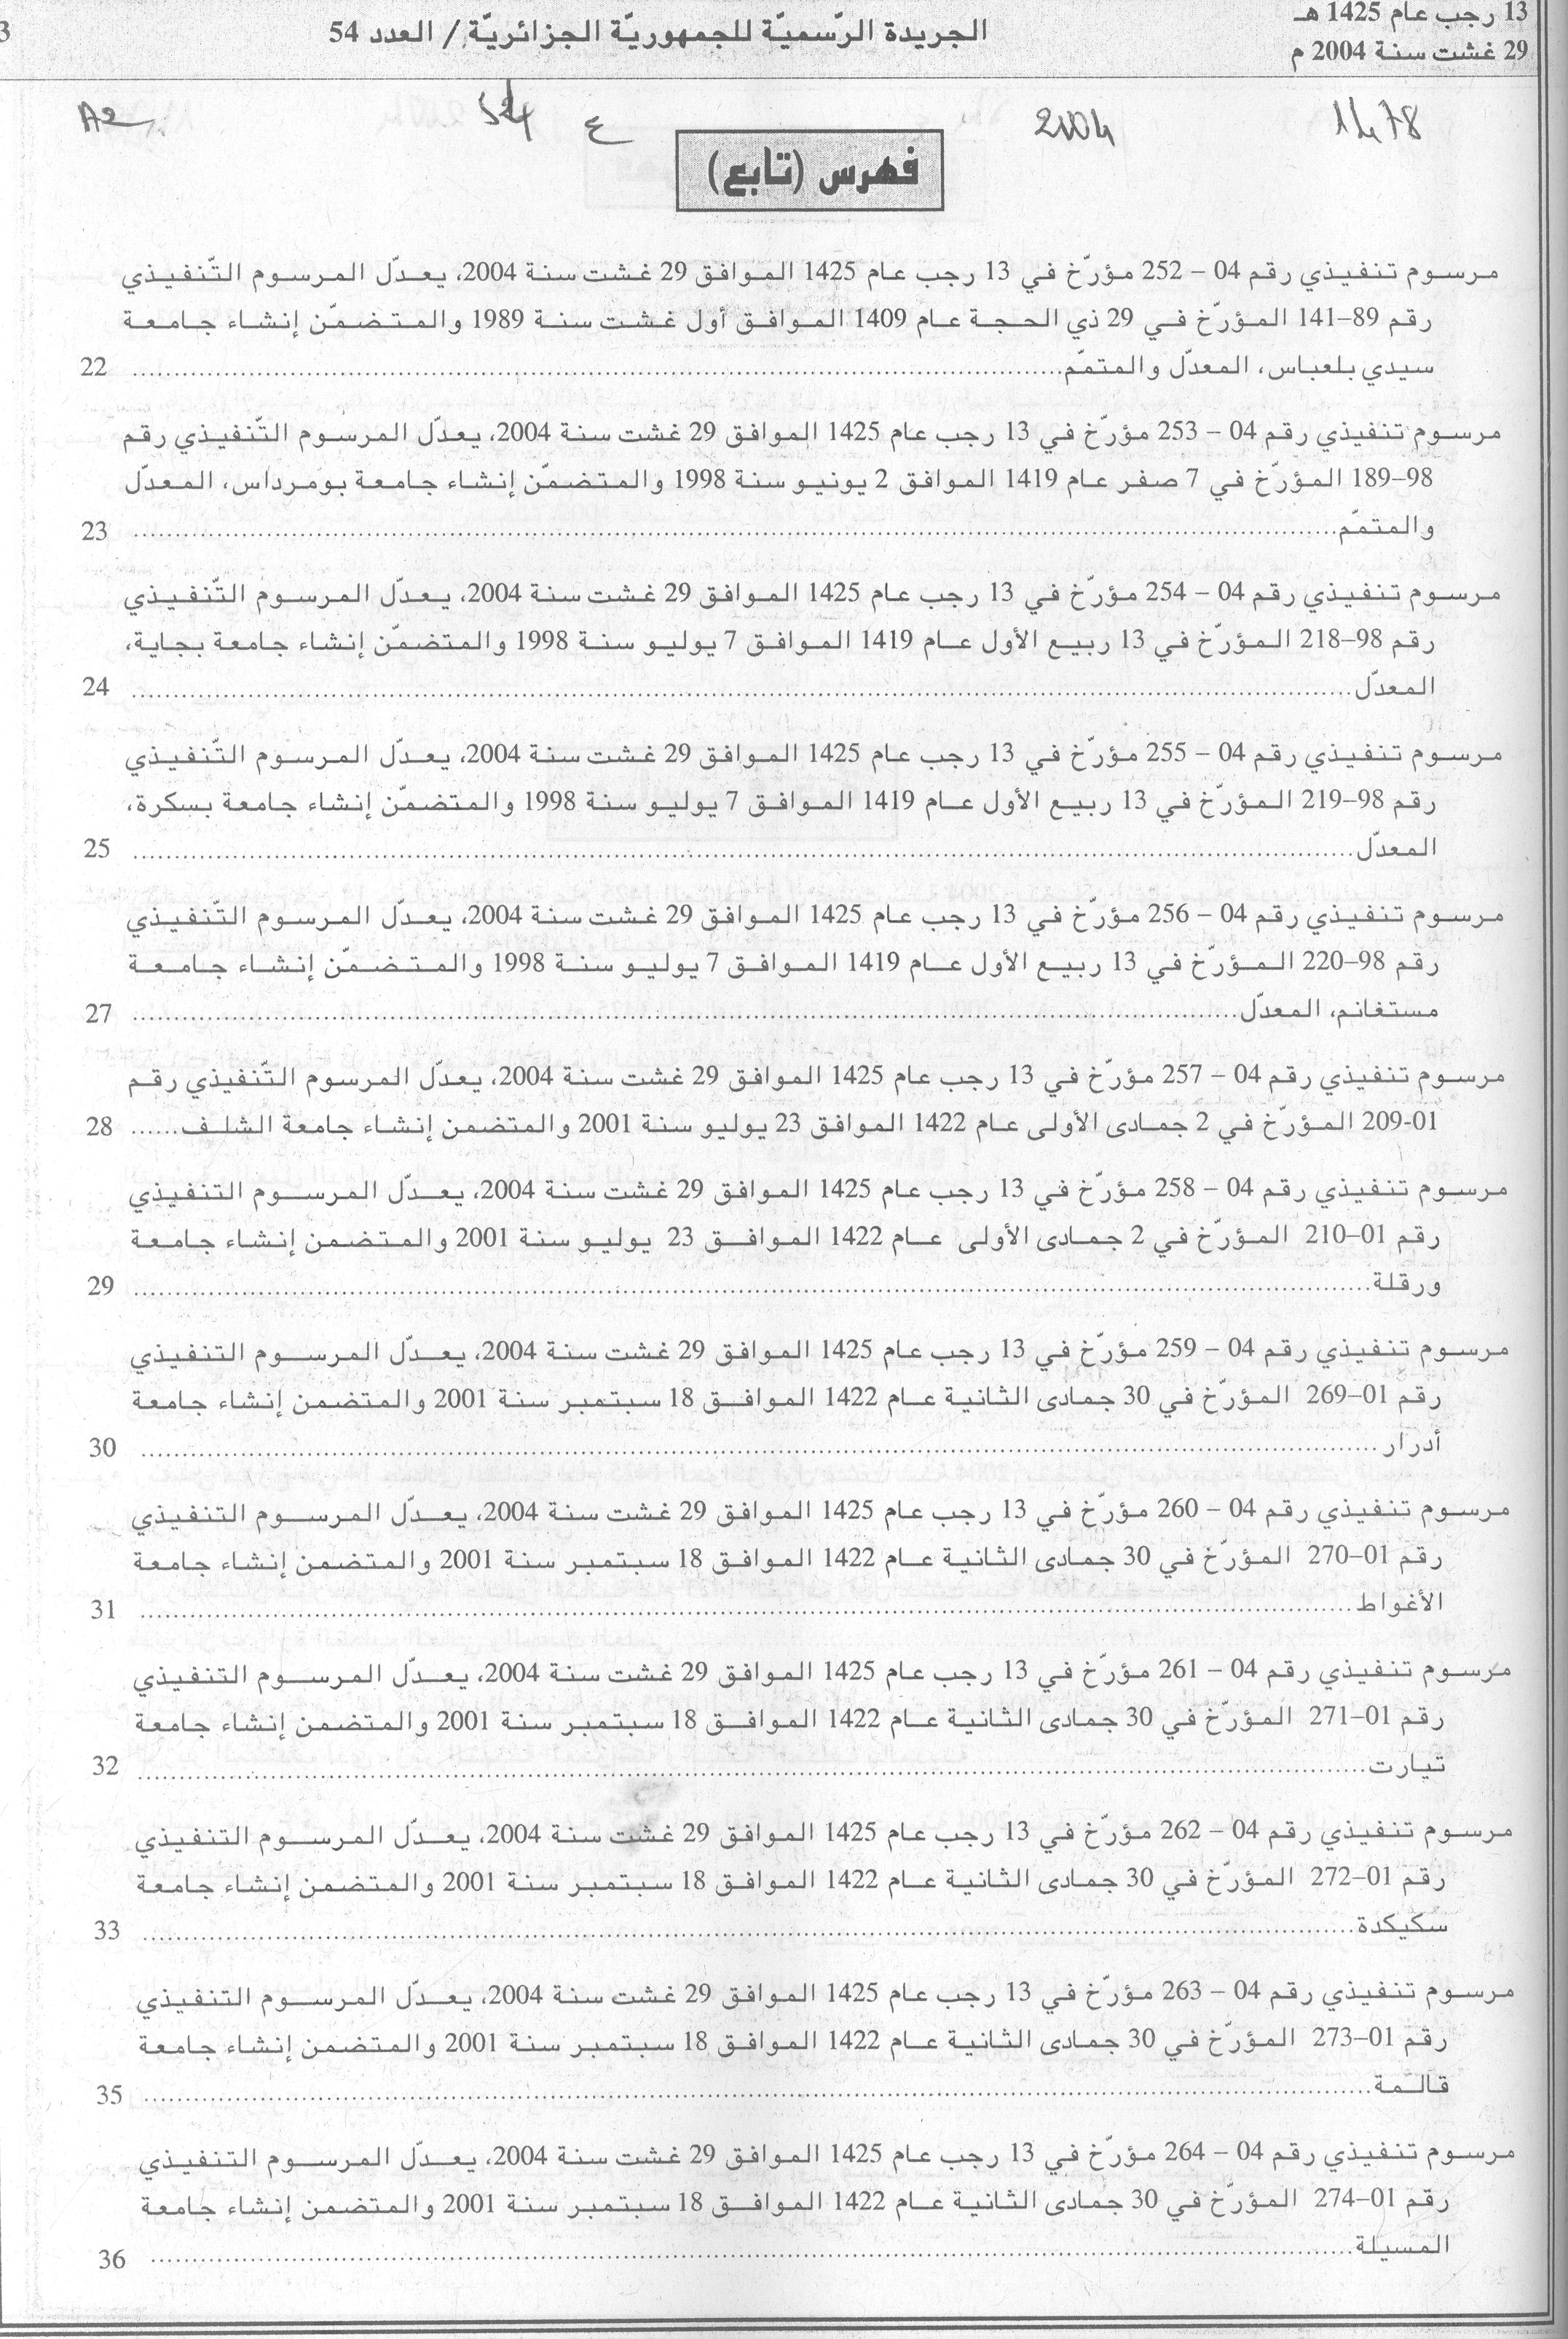 13 رجب عام 1425 هـ
29 غشت سنة 2004 م
الجريدة الرّسميّة للجمهوريّة الجزائريّة / العدد 54
3
1478
2004
ع
54
A2
فهرس (تابع)
مرسوم تنفيذي رقم 04 – 252 مؤرّخ في 13 رجب عام 1425 الموافق 29 غشت سنة 2004، يعدّل المرسوم التّنفيذي
رقم 89–141 المؤرّخ في 29 ذي الحجة عام 1409 الموافق أول غشت سنة 1989 والمتضمّن إنشاء جامعة
سيدي بلعباس، المعدّل والمتمّم .......... 22
مرسوم تنفيذي رقم 04 – 253 مؤرّخ في 13 رجب عام 1425 الموافق 29 غشت سنة 2004، يعدّل المرسوم التّنفيذي رقم
98–189 المؤرّخ في 7 صفر عام 1419 الموافق 2 يونيو سنة 1998 والمتضمّن إنشاء جامعة بومرداس، المعدّل
والمتمّم .......... 23
مرسوم تنفيذي رقم 04 – 254 مؤرّخ في 13 رجب عام 1425 الموافق 29 غشت سنة 2004، يعدّل المرسوم التّنفيذي
رقم 98–218 المؤرّخ في 13 ربيع الأول عام 1419 الموافق 7 يوليو سنة 1998 والمتضمّن إنشاء جامعة بجاية،
المعدّل .......... 24
مرسوم تنفيذي رقم 04 – 255 مؤرّخ في 13 رجب عام 1425 الموافق 29 غشت سنة 2004، يعدّل المرسوم التّنفيذي
رقم 98–219 المؤرّخ في 13 ربيع الأول عام 1419 الموافق 7 يوليو سنة 1998 والمتضمّن إنشاء جامعة بسكرة،
المعدّل .......... 25
مرسوم تنفيذي رقم 04 – 256 مؤرّخ في 13 رجب عام 1425 الموافق 29 غشت سنة 2004، يعدّل المرسوم التّنفيذي
رقم 98–220 المؤرّخ في 13 ربيع الأول عام 1419 الموافق 7 يوليو سنة 1998 والمتضمّن إنشاء جامعة
مستغانم، المعدّل .......... 27
مرسوم تنفيذي رقم 04 – 257 مؤرّخ في 13 رجب عام 1425 الموافق 29 غشت سنة 2004، يعدّل المرسوم التّنفيذي رقم
01-209 المؤرّخ في 2 جمادى الأولى عام 1422 الموافق 23 يوليو سنة 2001 والمتضمن إنشاء جامعة الشلف ...... 28
مرسوم تنفيذي رقم 04 – 258 مؤرّخ في 13 رجب عام 1425 الموافق 29 غشت سنة 2004، يعدّل المرسوم التنفيذي
رقم 01–210 المؤرّخ في 2 جمادى الأولى عام 1422 الموافق 23 يوليو سنة 2001 والمتضمن إنشاء جامعة
ورقلة .......... 29
مرسوم تنفيذي رقم 04 – 259 مؤرّخ في 13 رجب عام 1425 الموافق 29 غشت سنة 2004، يعدّل المرسوم التنفيذي
رقم 01–269 المؤرّخ في 30 جمادى الثانية عام 1422 الموافق 18 سبتمبر سنة 2001 والمتضمن إنشاء جامعة
أدرار .......... 30
مرسوم تنفيذي رقم 04 – 260 مؤرّخ في 13 رجب عام 1425 الموافق 29 غشت سنة 2004، يعدّل المرسوم التنفيذي
رقم 01–270 المؤرّخ في 30 جمادى الثانية عام 1422 الموافق 18 سبتمبر سنة 2001 والمتضمن إنشاء جامعة
الأغواط .......... 31
مرسوم تنفيذي رقم 04 – 261 مؤرّخ في 13 رجب عام 1425 الموافق 29 غشت سنة 2004، يعدّل المرسوم التنفيذي
رقم 01–271 المؤرّخ في 30 جمادى الثانية عام 1422 الموافق 18 سبتمبر سنة 2001 والمتضمن إنشاء جامعة
تيارت .......... 32
مرسوم تنفيذي رقم 04 – 262 مؤرّخ في 13 رجب عام 1425 الموافق 29 غشت سنة 2004، يعدّل المرسوم التنفيذي
رقم 01–272 المؤرّخ في 30 جمادى الثانية عام 1422 الموافق 18 سبتمبر سنة 2001 والمتضمن إنشاء جامعة
سكيكدة .......... 33
مرسوم تنفيذي رقم 04 – 263 مؤرّخ في 13 رجب عام 1425 الموافق 29 غشت سنة 2004، يعدّل المرسوم التنفيذي
رقم 01–273 المؤرّخ في 30 جمادى الثانية عام 1422 الموافق 18 سبتمبر سنة 2001 والمتضمن إنشاء جامعة
قالمة .......... 35
مرسوم تنفيذي رقم 04 – 264 مؤرّخ في 13 رجب عام 1425 الموافق 29 غشت سنة 2004، يعدّل المرسوم التنفيذي
رقم 01–274 المؤرّخ في 30 جمادى الثانية عام 1422 الموافق 18 سبتمبر سنة 2001 والمتضمن إنشاء جامعة
المسيلة .......... 36